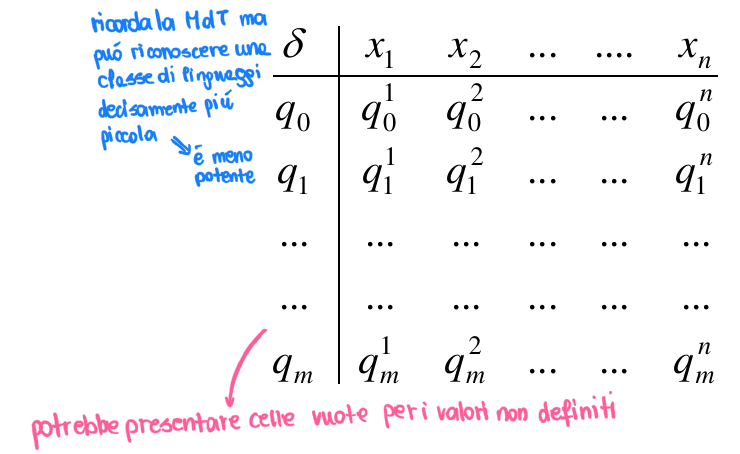 ricorda la MdT ma
può riconoscere una
classe di linguaggi
decisamente più
piccola
è meno
potente
δ x₁ x₂ ... .... xₙ
q₀ q₀¹ q₀² ... ... q₀ⁿ
q₁ q₁¹ q₁² ... ... q₁ⁿ
... ... ... ... ... ...
... ... ... ... ... ...
qₘ qₘ¹ qₘ² ... ... qₘⁿ
potrebbe presentare celle vuote per i valori non definiti